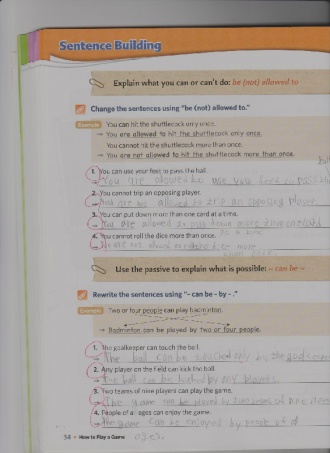 Sentence Building
Explain what you can or can't do: be (not) allowed to
Change the sentences using "be (not) allowed to."
Example You can hit the shuttlecock only once.
→ You are allowed to hit the shuttlecock only once.
You cannot hit the shuttlecock more than once.
→ You are not allowed to hit the shuttlecock more than once.
1. You can use your feet to pass the ball.
→ You are allowed to use your feet pass the
2. You cannot trip an opposing player.
→ You are allowed to trip an opposing player
3. You can put down more than one card at a time.
→ You are allowed to put down more
4. You cannot roll the dice more than once.
→ dice more
Use the passive to explain what is possible: ~ can be ~
Rewrite the sentences using "~ can be ~ by ~ ."
Example Two or four people can play badminton.
→ Badminton can be played by two or four people.
1. The goalkeeper can touch the ball.
→ The ball can be touched only by the
2. Any player on the field can kick the ball.
→ The ball can be kicked by any players
3. Two teams of nine players can play the game.
→ The game can be played by two teams of nine
4. People of all ages can enjoy the game.
→ The game can be enjoyed by people of
ages.
34 • How to Play a Game